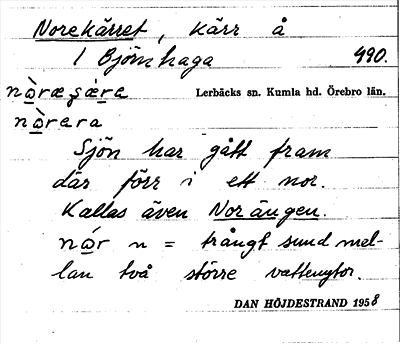 Norekärret, kärr å
1 Björnhaga 490.
nòræʂæ̀ra Lerbäcks sn. Kumla hd. Örebro län.
nòrara
Sjön har gått fram
där förr i ett nor.
Kallas även Norängen.
nór n = trångt sund mel-
lan två större vattenytor.
DAN HÖJDESTRAND 1958